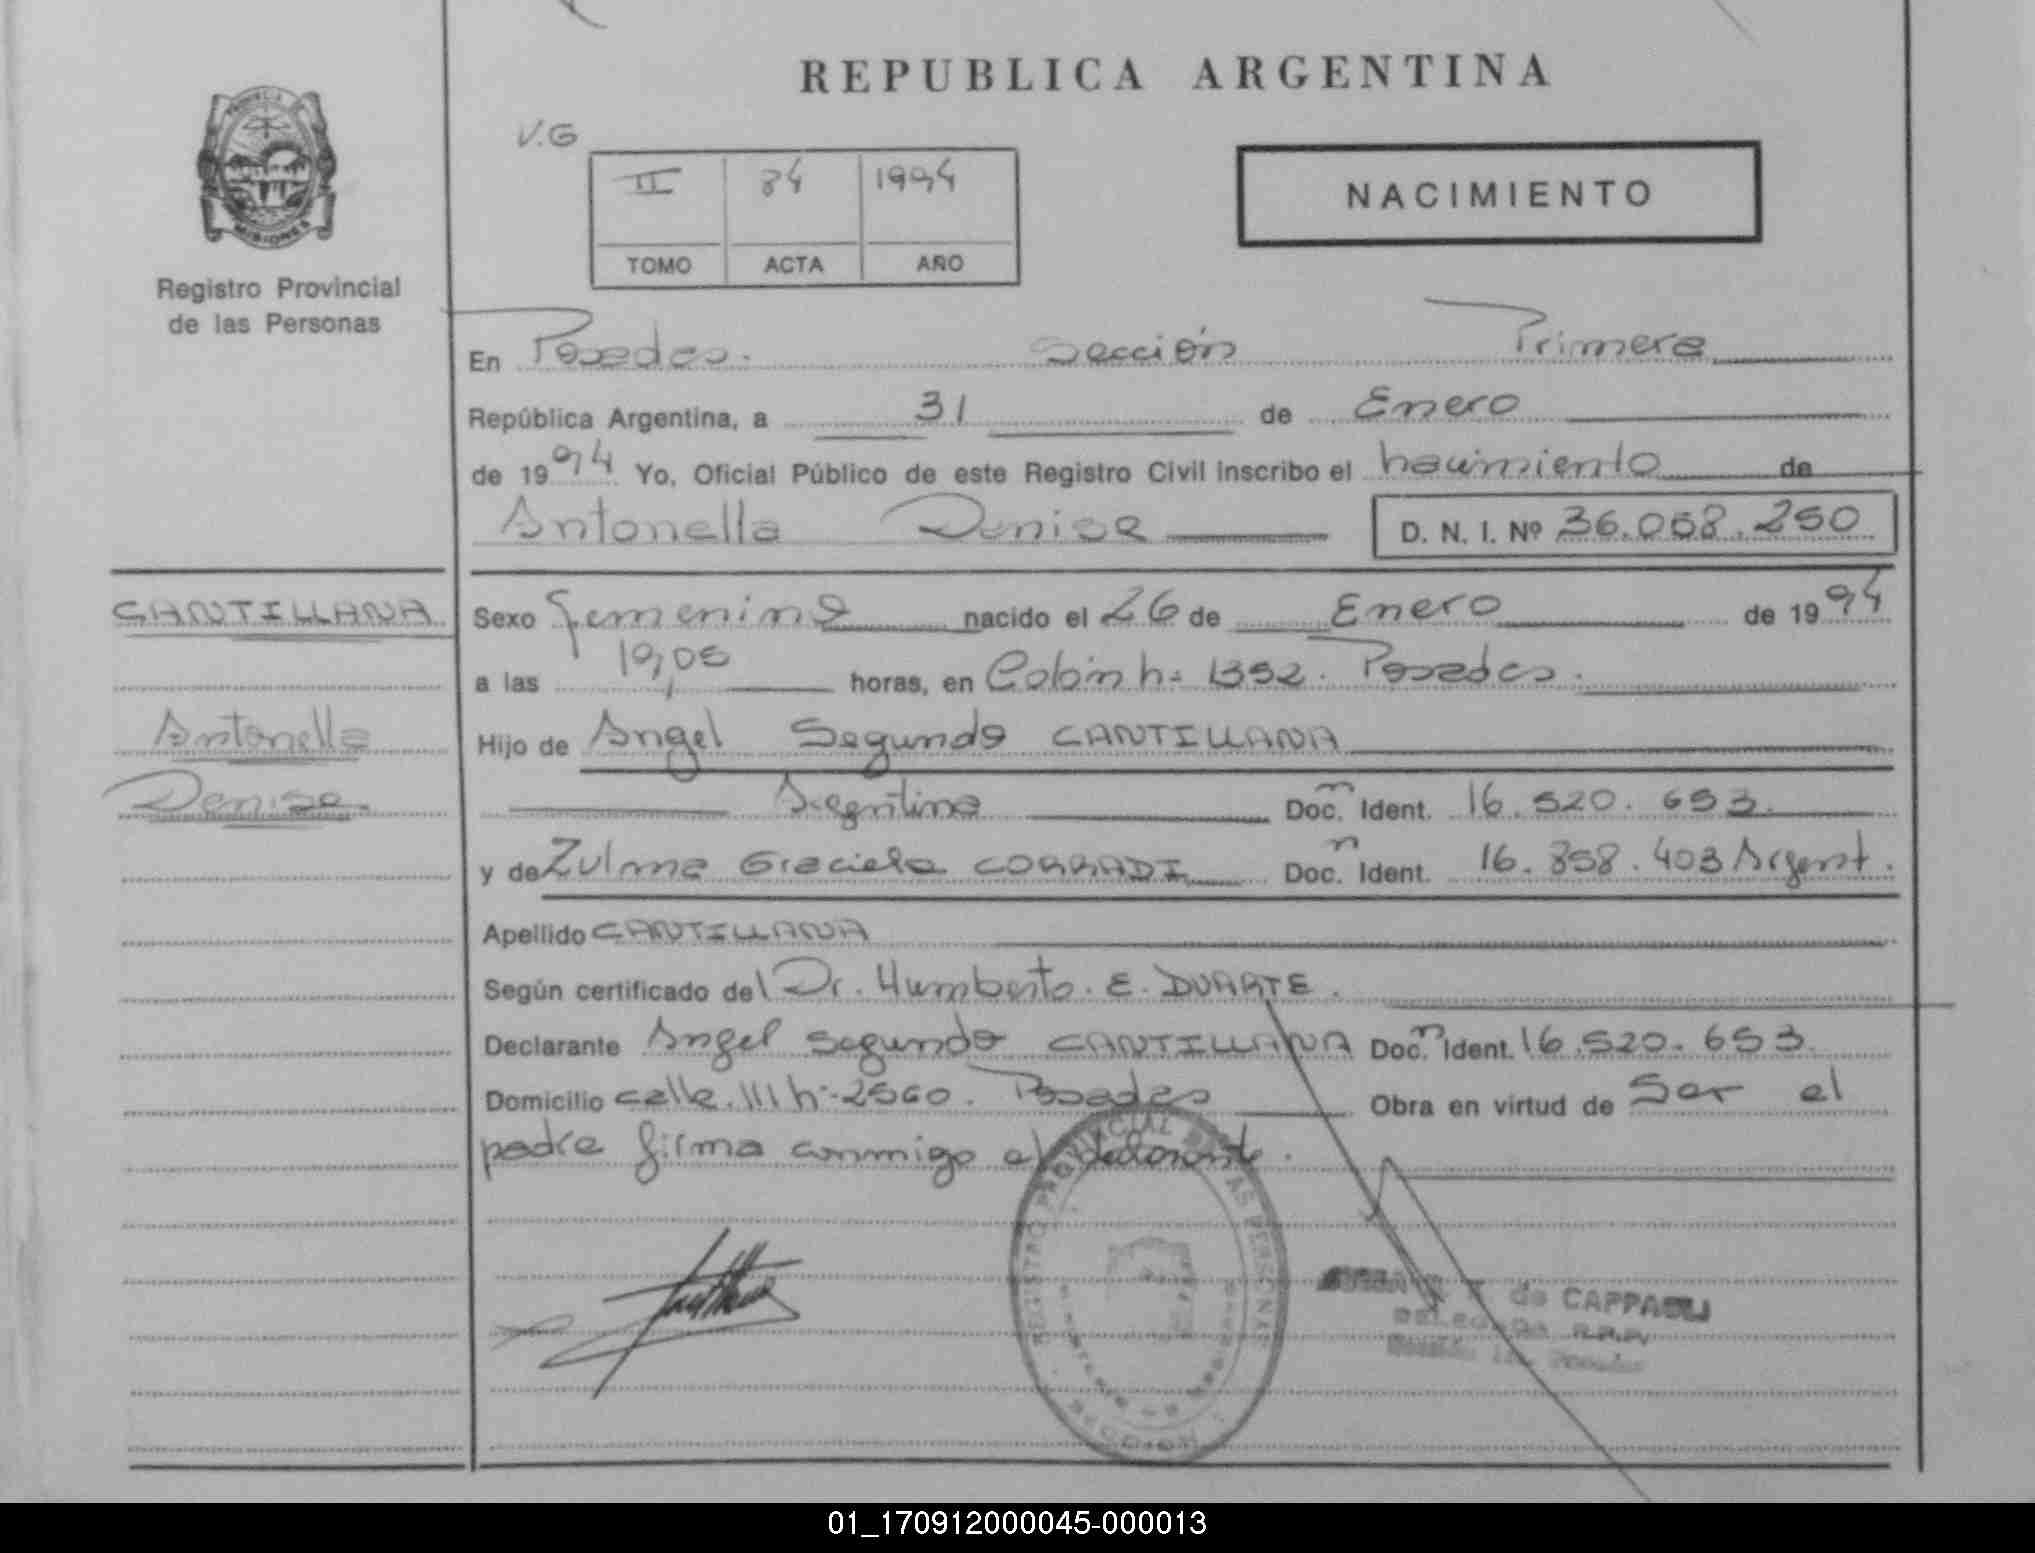 REPUBLICA ARGENTINA
PROVINCIA
MISIONES
Registro Provincial
de las Personas
V.G
II 84 1994
TOMO ACTA AÑO
NACIMIENTO
En Posadas. Sección Primera
República Argentina, a 31 de Enero
de 1994 Yo, Oficial Público de este Registro Civil inscribo el nacimiento de
Antonella Denise D. N. I. Nº 36.058.250
CANTILLANA
Antonella
Denise
Sexo Femenino nacido el 26 de Enero de 1994
a las 19,05 horas, en Colón nº 1352. Posadas.
Hijo de Angel Segundo CANTILLANA
Argentino Doc. Ident. 16.520.653.
y de Zulma Graciela CORRADI Doc. Ident. 16.858.403 Argent.
Apellido CANTILLANA
Según certificado del Dr. Humberto. E. DUARTE.
Declarante Angel Segundo CANTILLANA Doc. Ident. 16.520.653
Domicilio calle 111 nº 2560. Posadas Obra en virtud de Ser el
padre firma conmigo el declarante.
REGISTRO PROVINCIAL DE LAS PERSONAS
de CAPPAGLI
DELEGADA R.P.P.
Sección 1ra. Posadas
01_170912000045-000013